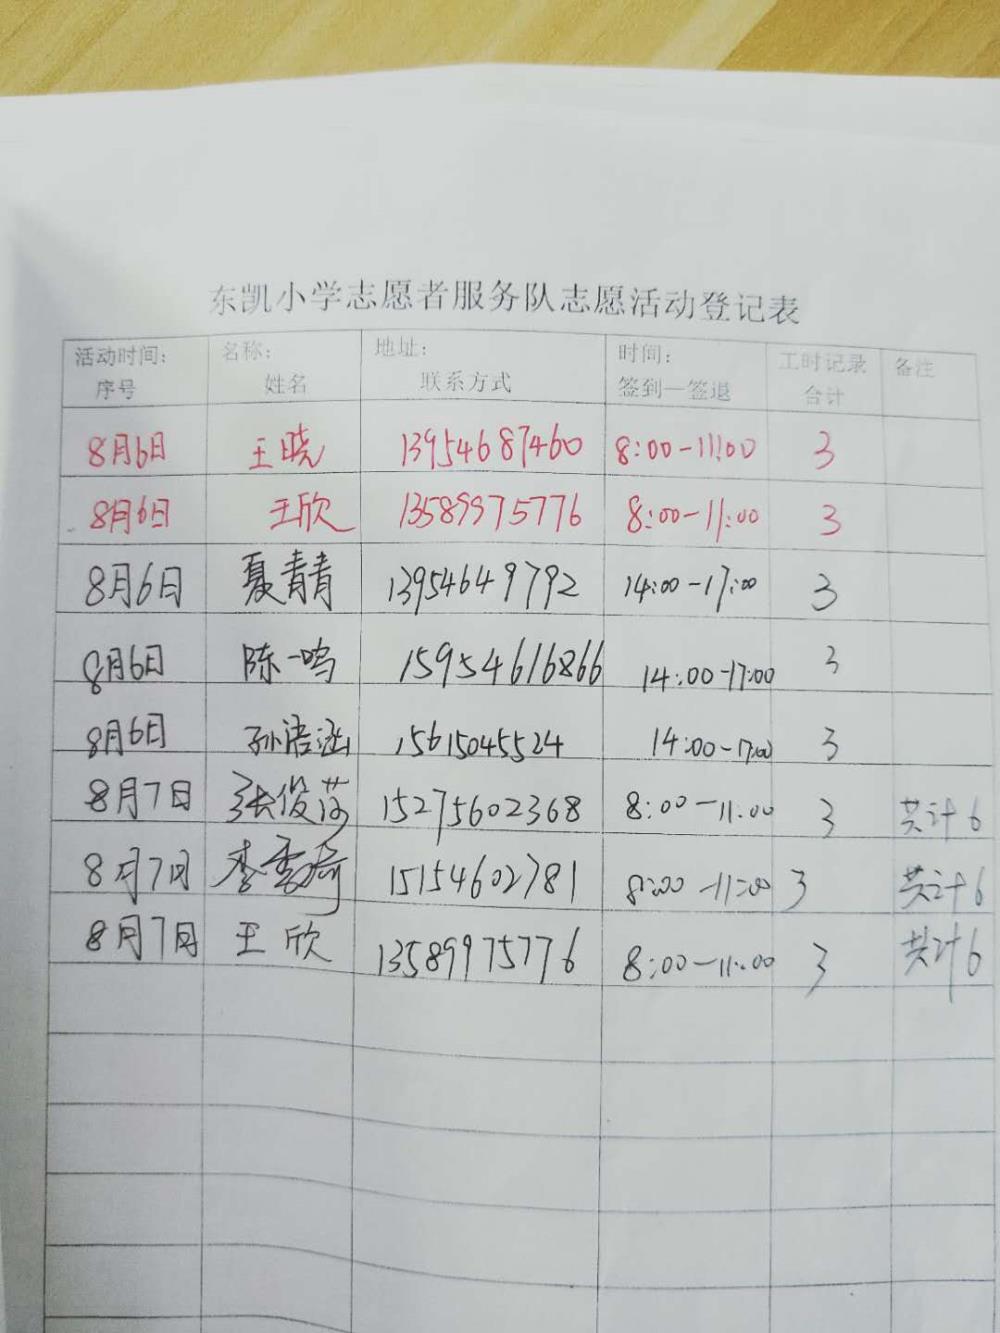 东凯小学志愿者服务队志愿活动登记表
活动时间： 名称： 地址： 时间： 工时记录 备注
序号 姓名 联系方式 签到—签退 合计
8月6日 王晓 13954687460 8:00-11:00 3
8月6日 王欣 13589975776 8:00-11:00 3
8月6日 夏青青 13954649792 14:00-17:00 3
8月6日 陈一鸣 15954616866 14:00-17:00 3
8月6日 孙浩涵 15615045524 14:00-17:00 3
8月7日 张俊莎 15275602368 8:00-11:00 3 共计6
8月7日 李 15154602781 8:00-11:00 3 共计6
8月7日 王欣 13589975776 8:00-11:00 3 共计6